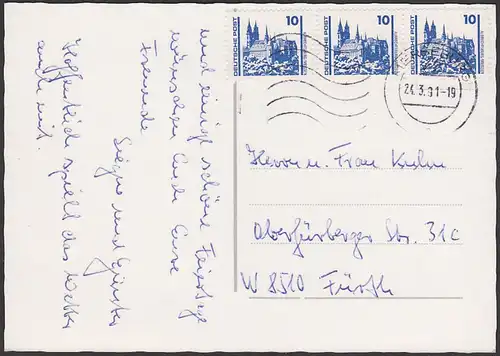 und einige schöne Feiertage
wünschen Euch Eure
Freunde
Siegne und Günter
Hoffentlich spielt das Wetter
auch mit.
DEUTSCHE POST
10
DEUTSCHE POST
10
DEUTSCHE POST
10
24.3.91-19
Herrn u. Frau Kuhn
Oberfürberger Str. 31c
W 8510 Fürth